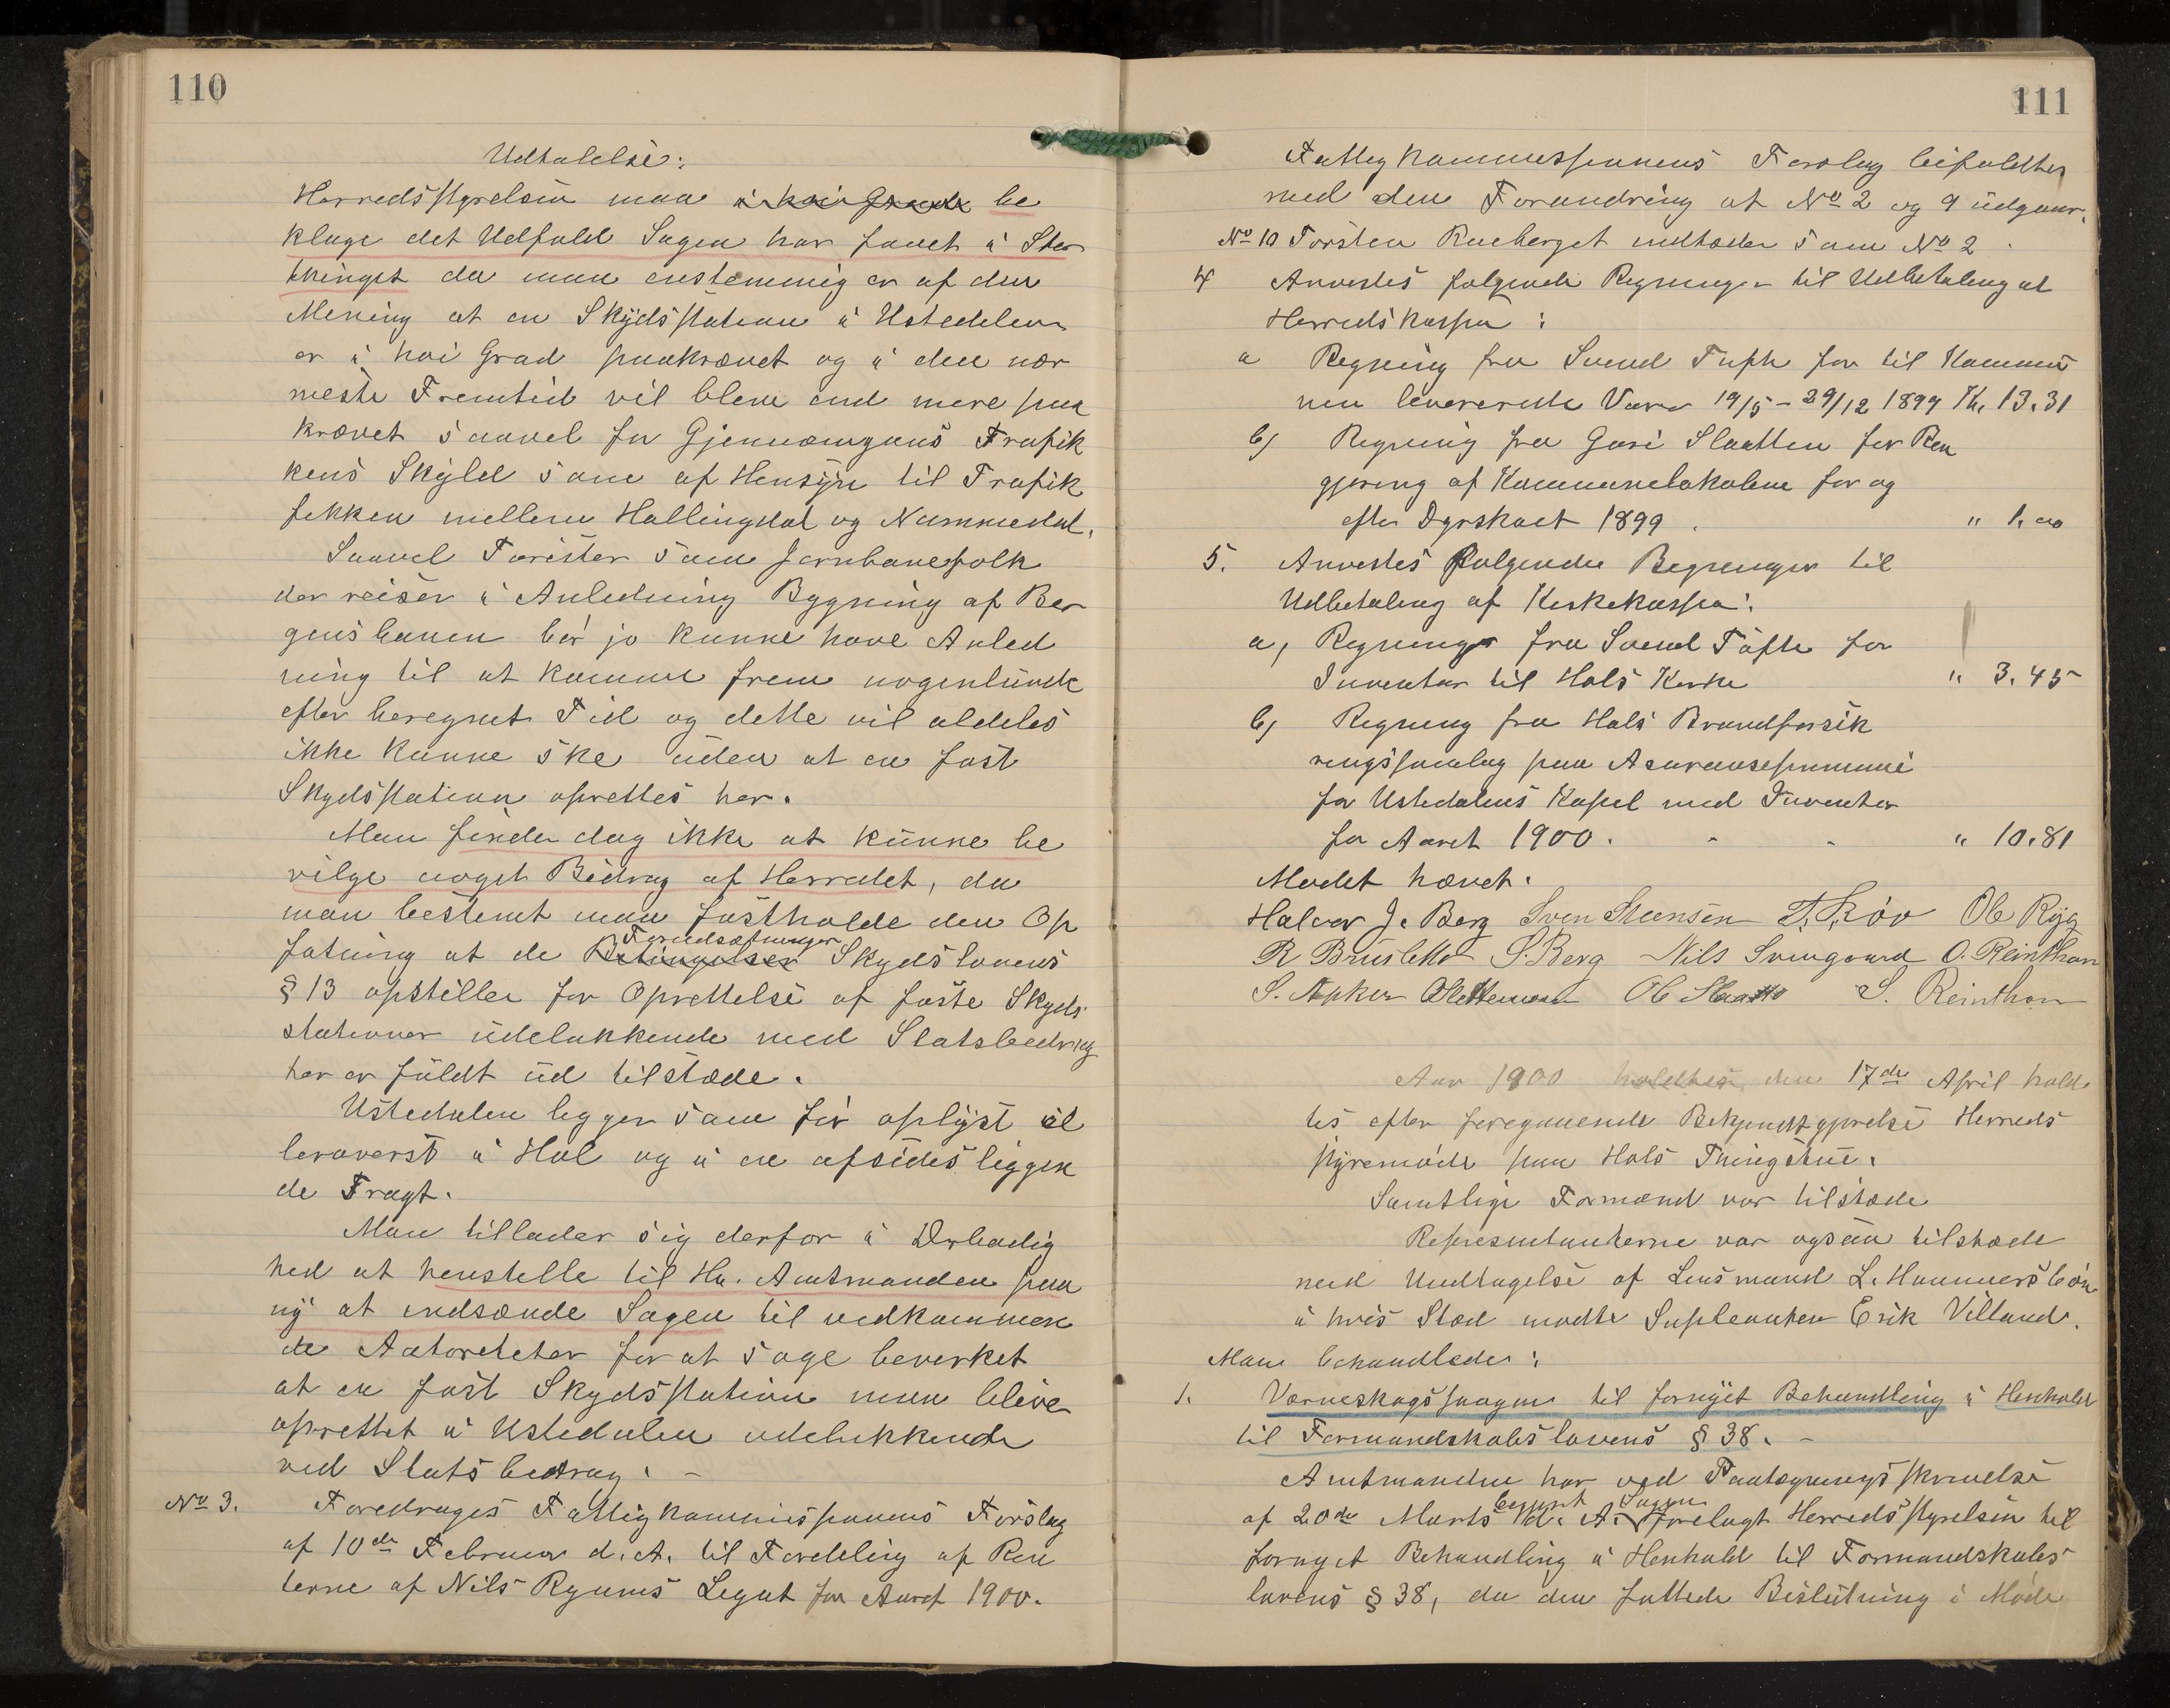 110
Udtalelse:
Herredsstyrelsen maa i høi Grade be
klage det Udfald Sagen har faaet i Stor
thinget da man enstemmig er af den
Mening at en Skydsstation i Ustedalen
er i høi Grad paakrævet og i den nær
meste Fremtid vil blive end mere paa
krævet saavel for Gjennemgangs Trafik
kens Skyld som af Hensyn til Trafik
fikken mellem Hallingdal og Nummedal.
Saavel Turister som Jernbanefolk
der reiser i Anledning Bygning af Ber
gensbanen bør jo kunne have Anled
ning til at komme frem nogenlunde
efter beregnet Tid og dette vil aldeles
ikke kunne ske uden at en fast
Skydsstation oprettes her.
Man finder dog ikke at kunne be
vilge noget Bidrag af Herredet, da
man bestemt maa fastholde den Op
Forudsætninger
fatning at de Betingelser Skydslovens
§ 13 opstiller for Oprettelse af faste Skyds
stationer udelukkende med Statsbedrag
her er fuldt ud tilstæde.
Ustedalen ligger som før oplyst al
lerøverst i Hol og i en afsides liggen
de Fragt.
Man tillader sig derfor i Ærbødig
hed at henstille til Hr. Amtmanden paa
ny at indsænde Sagen til vedkommen
de Autoreteter for at søge bevirket
at en fast Skydsstation maa blive
oprettet i Ustedalen udelukkende
ved Statsbedrag. –
No 3. Foredrages Fattigkommissionens Forslag
af 10de Februar d. A. til Fordeling af Ren
terne af Nils Rynins Legat for Aaret 1900.
111
Fattigkommissionens Forslag bifaldtes
med den Forandring at No 2 og 9 udgaar.
No 10 Torsten Rueberget indtæder som No 2.
4 Anvestes følgende Regninger til Udbetaling af
Herredskassen:
a Regning fra Svend Tufte for til Kommu
nen levererede Varer 19/5 – 29/12 1899 Kr. 13.31
b) Regning fra Guri Slaatten for Ren
gjøring af Kommunelokalene før og
efter Dyrskuet 1899. " 1.00
5. Anvestes følgende Regninger til
Udbetaling af Kirkekassen:
a, Regninger fra Svend Tufte for
Inventar til Hols Kirke " 3.45
b) Regning fra Hols Brandforsik
ringssamlag paa Asuransepremie
for Ustedalens Kapel med Inventar
for Aaret 1900. " 10.81
Mødet hævet.
Halvor J. Berg Sven Steensen T. Skøv Ole Ryg
R Brusletto S. Berg Nils Svengaard O. Reinthon
S. Ole Slaatto S. Reinthon
Aar 1900 holdtes, den 17de April hold
tes efter foregaaende Bekjendtgjørelse Herreds
styremøde paa Hols Thingstue.
Samtlige Formænd var tilstæde
Representanterne var ogsaa tilstæde
med Undtagelse af Lensmand L. Hammersbøn
i hvis Sted mødte Supleanten Erik Villand.
Man behandlede:
1. Værneskogssagen til fornyet Behandling i Henhold
til Formandskabslovens § 38. –
Amtmanden har ved Paategningsskrivelse
begjært Sagen
af 20de Marts d. A. forelagt Herredsstyrelsen til
fornyet Behandling i Henhold til Formandskabs
lovens § 38, da den fattede Beslutning i Møde